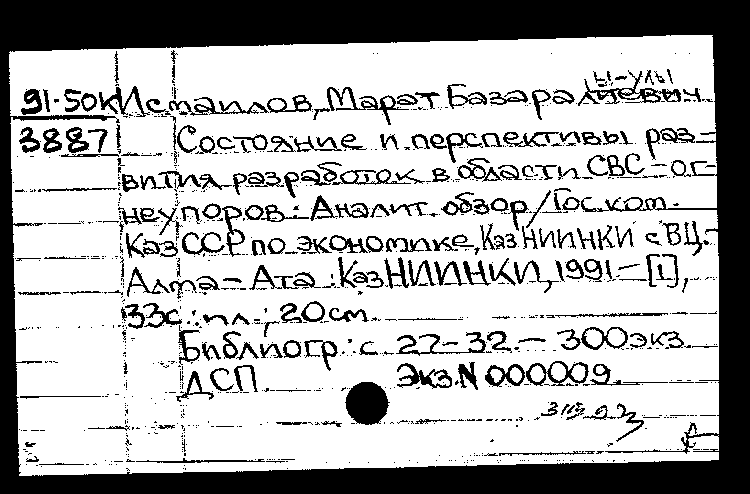 ы-улы
91-50К Исмаилов, Марат Базаралиевич
3887 Состояние и перспективы раз-
вития разработок в области СВС-ог-
неупоров: Аналит. обзор/Гос.ком.
КазССР по экономике, КазНИИНКИ с ВЦ.-
Алма-Ата: КазНИИНКИ, 1991-[1],
33с.: ил.; 20см.
Библиогр: с. 27-32. - 300экз.
ДСП. Экз.N 000009.